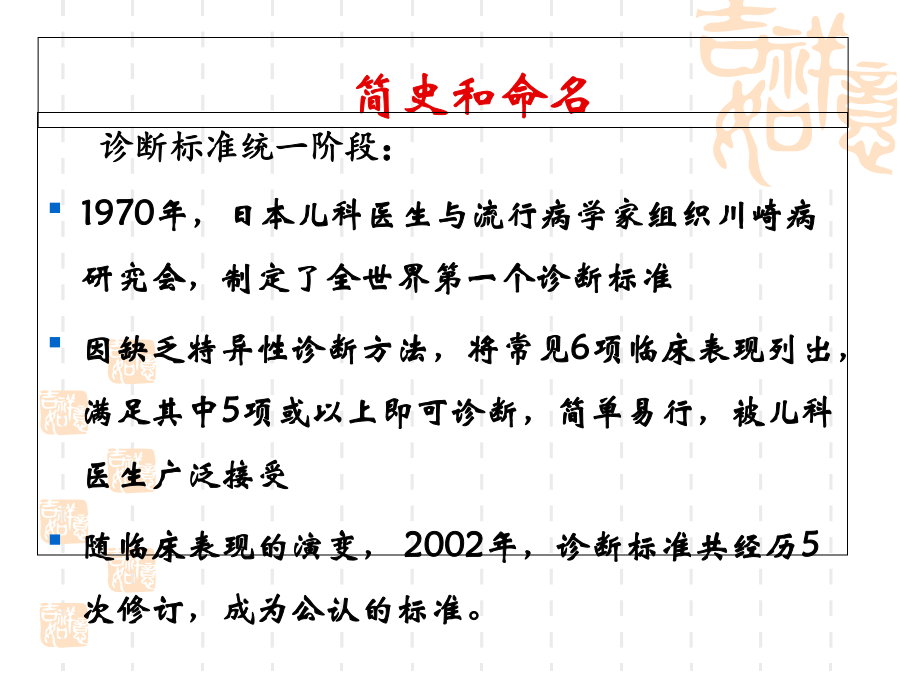 吉祥如意
简史和命名
诊断标准统一阶段：
1970年，日本儿科医生与流行病学家组织川崎病
研究会，制定了全世界第一个诊断标准
因缺乏特异性诊断方法，将常见6项临床表现列出，
满足其中5项或以上即可诊断，简单易行，被儿科
医生广泛接受
随临床表现的演变， 2002年，诊断标准共经历5
次修订，成为公认的标准。
吉祥如意
吉祥如意
吉祥如意
吉祥如意
吉祥如意
吉祥如意